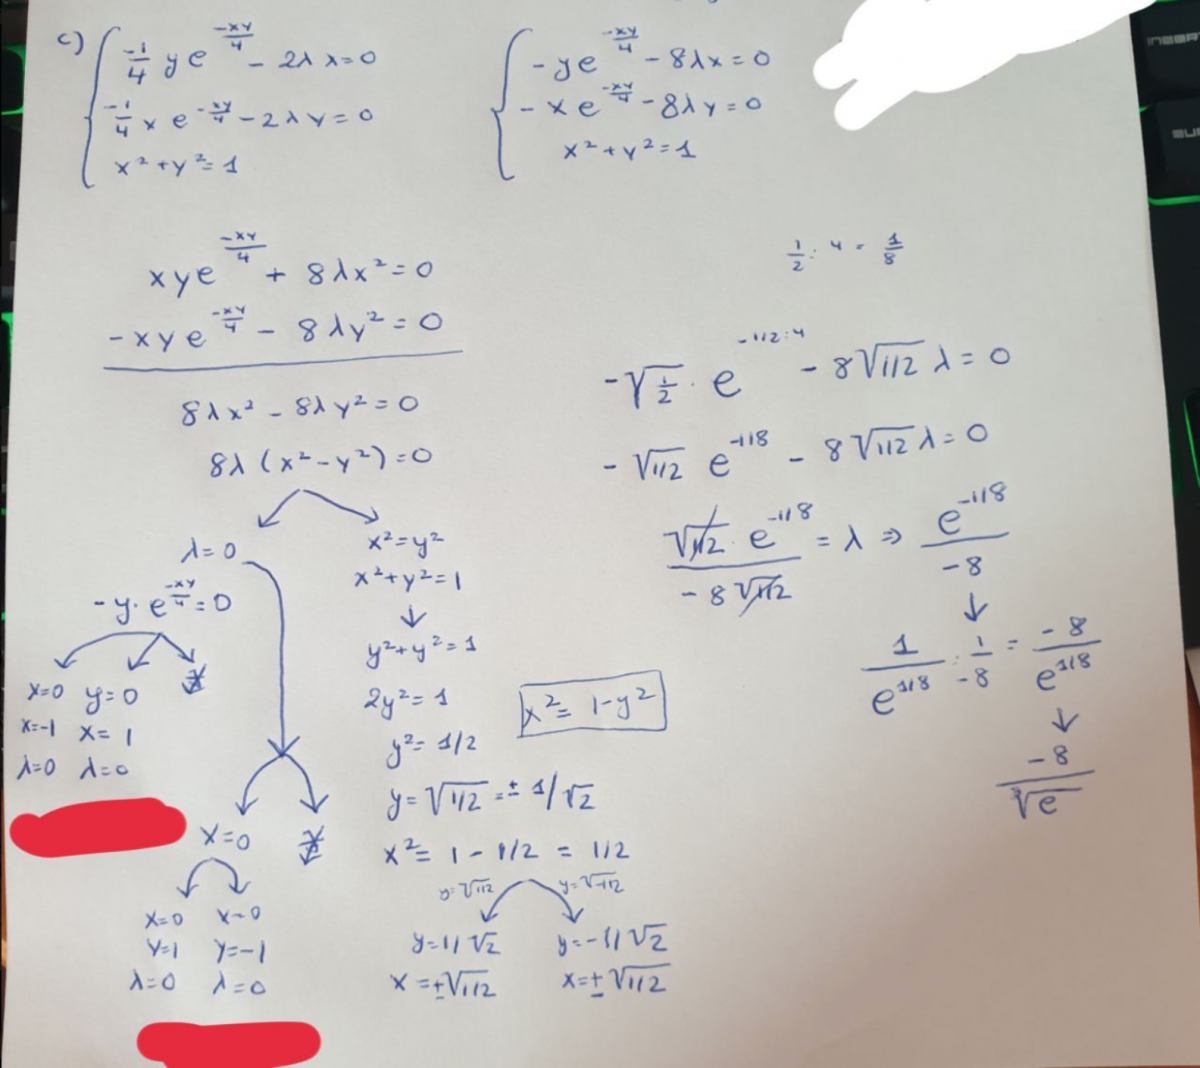 c)
-1/4 y e^(-xy/4) - 2λx = 0
-1/4 x e^(-xy/4) - 2λy = 0
x² + y² = 1
-ye^(-xy/4) - 8λx = 0
-xe^(-xy/4) - 8λy = 0
x² + y² = 1
xye^(-xy/4) + 8λx² = 0
-xye^(-xy/4) - 8λy² = 0
8λx² - 8λy² = 0
8λ(x² - y²) = 0
λ = 0
-y · e^(-xy/4) = 0
x=0 y=0 ∄
x=-1 x=1
λ=0 λ=0
x=0 ∄
x=0 x=0
y=1 y=-1
λ=0 λ=0
x² = y²
x² + y² = 1
↓
y² + y² = 1
2y² = 1
x² = 1-y²
y² = 1/2
y = √1/2 = ± 1/√2
x² = 1 - 1/2 = 1/2
y=√1/2 y=√-1/2
y=1/√2 y=-1/√2
x=±√1/2 x=±√1/2
1/2 : 4 = 1/8
-√1/2 · e^(-1/2:4) - 8√1/2 λ = 0
-√1/2 e^(-1/8) - 8√1/2 λ = 0
√1/2 · e^(-1/8) / -8√1/2 = λ ⇒ e^(-1/8) / -8
↓
1/e^(1/8) : 1/-8 = -8/e^(1/8)
↓
-8/⁸√e
INSERT